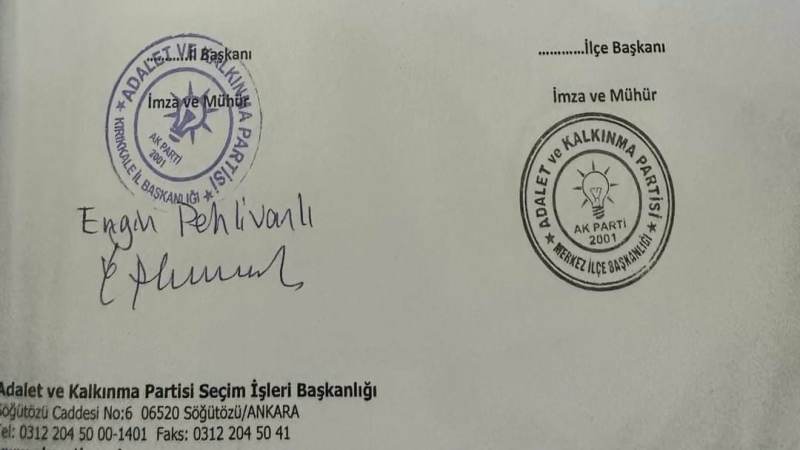 ...........İl Başkanı
İmza ve Mühür
ADALET VE KALKINMA PARTİSİ
AK PARTİ
2001
KIRIKKALE İL BAŞKANLIĞI
Engin Pehlivanlı
............İlçe Başkanı
İmza ve Mühür
ADALET ve KALKINMA PARTİSİ
AK PARTİ
2001
MERKEZ İLÇE BAŞKANLIĞI
Adalet ve Kalkınma Partisi Seçim İşleri Başkanlığı
Söğütözü Caddesi No:6 06520 Söğütözü/ANKARA
Tel: 0312 204 50 00-1401 Faks: 0312 204 50 41